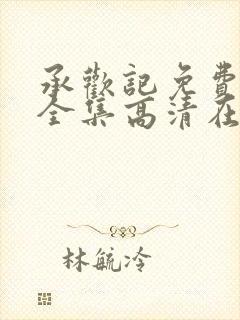 承歡記免費
全集高清在
林毓泠